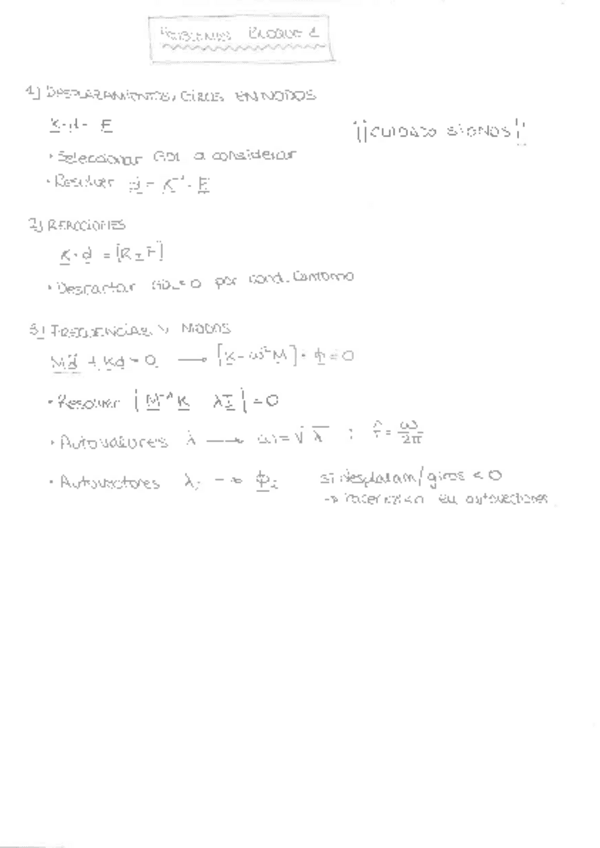 PROBLEMAS BLOQUE 1
1) DESPLAZAMIENTOS, GIROS EN NODOS
K·d = F
¡¡CUIDADO SIGNOS!!
· Seleccionar GDL a considerar
· Resolver d = K⁻¹ · F
2) REACCIONES
K · d = [R ± F]
· Descartar GDL = 0 por cond. contorno
3) FRECUENCIAS Y MODOS
Md̈ + Kd = 0 → [K - ω²M] · ϕ = 0
· Resolver |M⁻¹K λI| = 0
· Autovalores λ → ωi = √λ ; f = ω/2π
· Autovectores λi → ϕi si desplazam/giros < 0
→ en autovectores